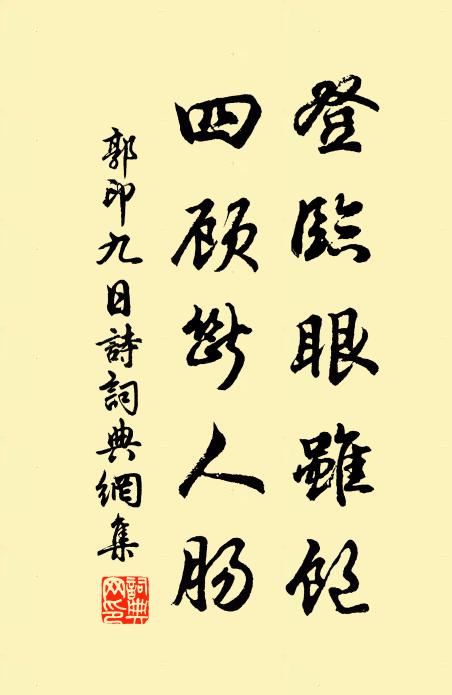 登臨眼雖飽
四顧斷人腸
郭印九日詩詞典網集
詞典
网印